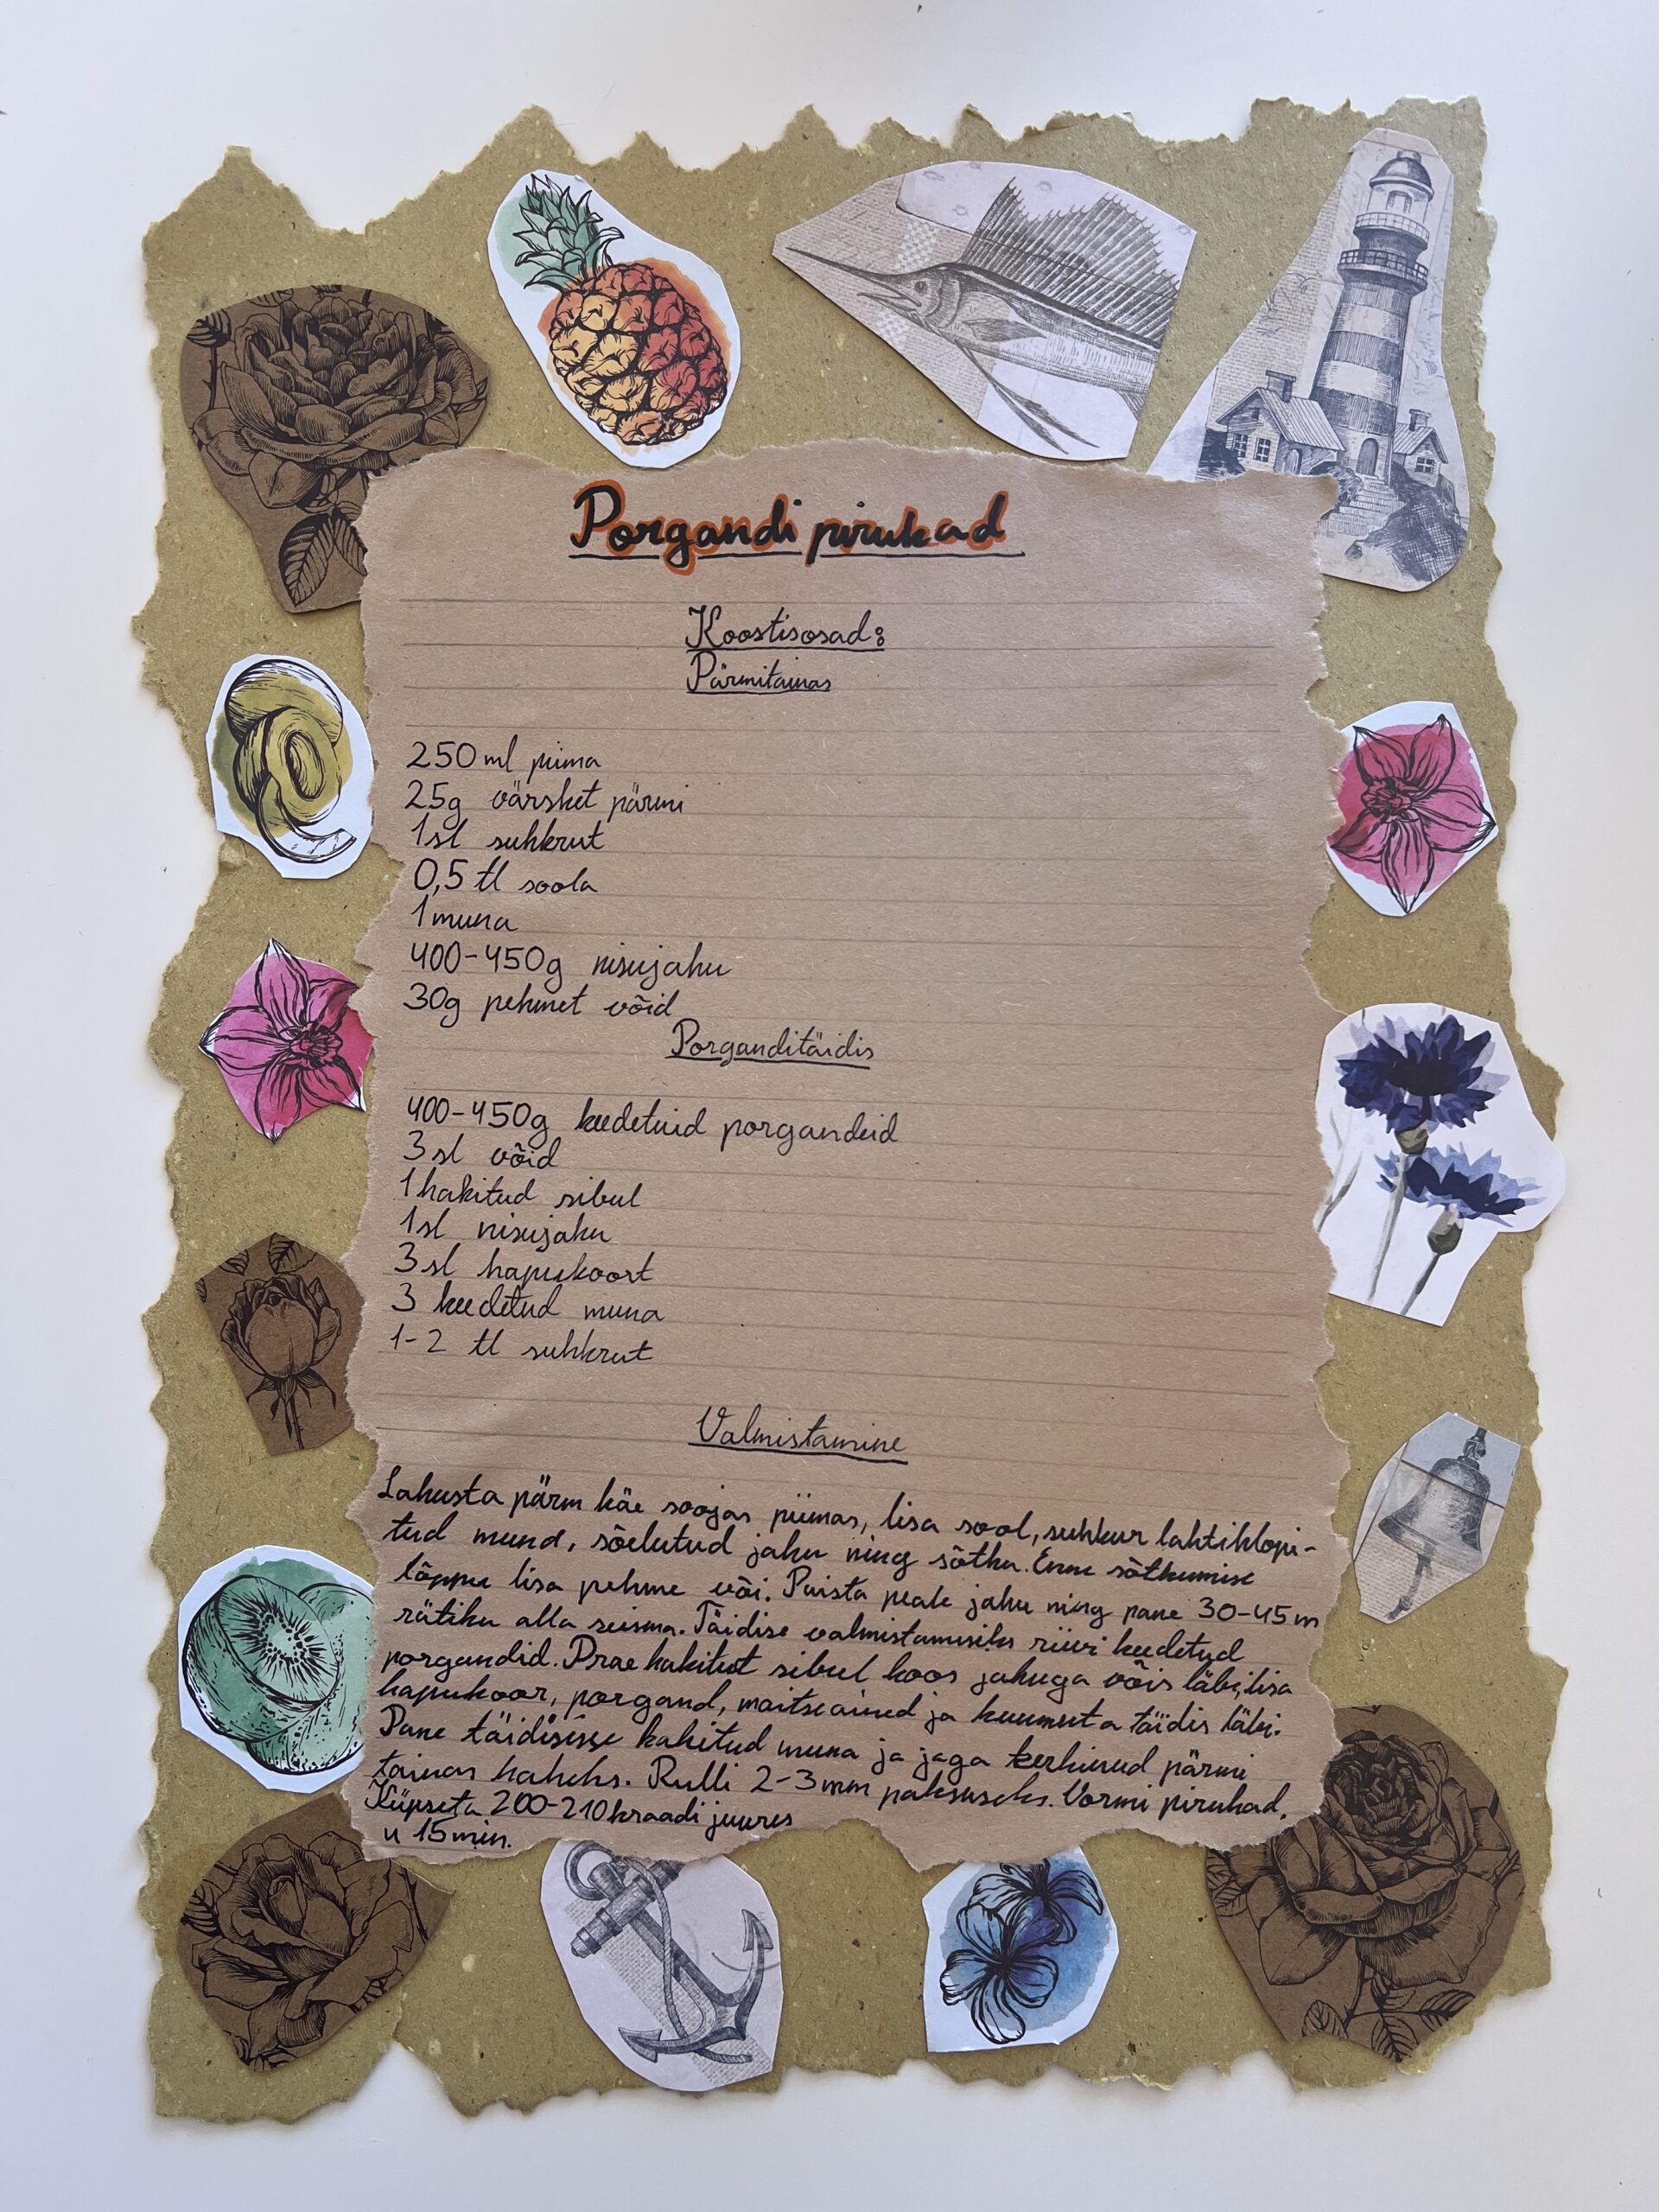 Porgandi pirukad
Koostisosad:
Pärmitainas
250 ml piima
25g värsket pärmi
1sl suhkrut
0,5 tl soola
1 muna
400-450g nisujahu
30g pehmet võid
Porganditäidis
400-450g keedetuid porgandeid
3 sl võid
1 hakitud sibul
1sl nisujahu
3 sl hapukoort
3 keedetud muna
1-2 tl suhkrut
Valmistamine
Lahusta pärm käe soojas piimas, lisa sool, suhkur lahtiklopi-
tud muna, sõelutud jahu ning sõtku. Enne sõtkumise
lõppu lisa pehme või. Puista peale jahu ning pane 30-45 m
rätiku alla seisma. Täidise valmistamiseks riivi keedetud
porgandid. Prae hakitut sibul koos jahuga võis läbi, lisa
hapukoor, porgand, maitseained ja kuumuta täidis läbi.
Pane täidisisse hakitud muna ja jaga kerkinud pärmi
tainas kaheks. Rulli 2-3 mm paksuseks. Vormi pirukad.
Küpseta 200-210 kraadi juures
u 15 min.